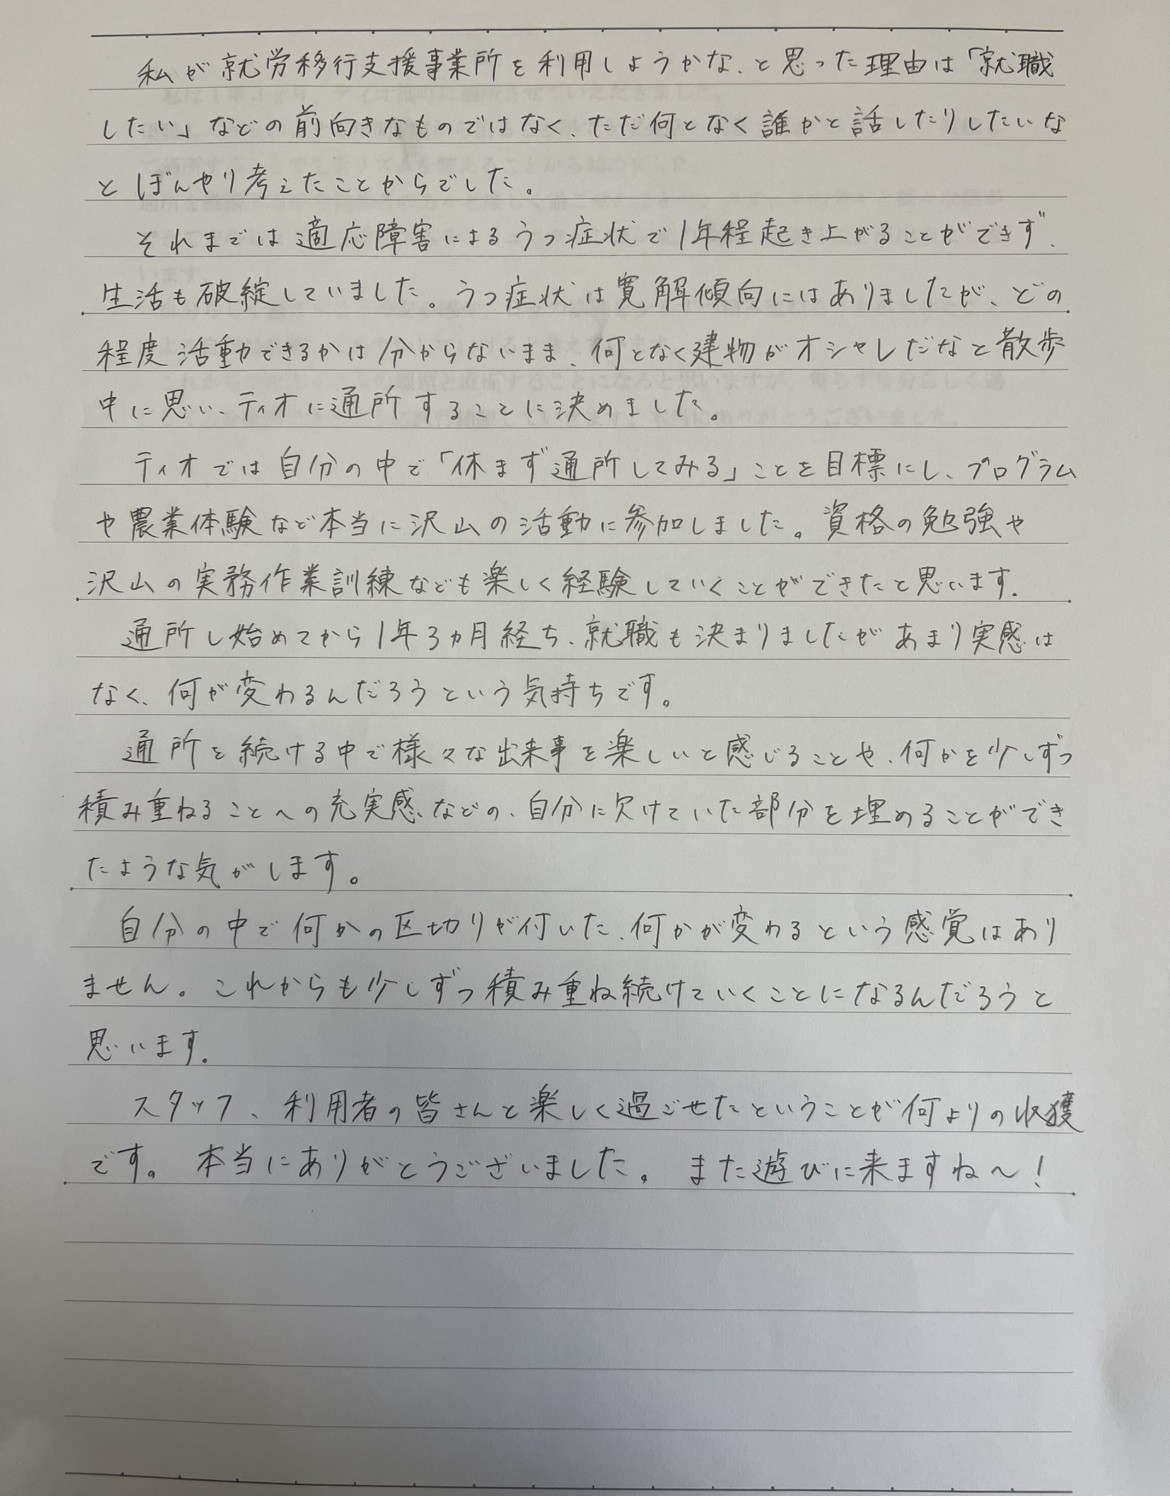 私が就労移行支援事業所を利用しようかな、と思った理由は「就職
したい」などの前向きなものではなく、ただ何となく誰かと話したりしたいな
とぼんやり考えたことからでした。
それまでは適応障害によるうつ症状で1年程起き上がることができず、
生活も破綻していました。うつ症状は寛解傾向にはありましたが、どの
程度活動できるかは分からないまま、何となく建物がオシャレだなと散歩
中に思い、ティオに通所することに決めました。
ティオでは自分の中で「休まず通所してみる」ことを目標にし、プログラム
や農業体験など本当に沢山の活動に参加しました。資格の勉強や
沢山の実務作業訓練なども楽しく経験していくことができたと思います。
通所し始めてから1年3ヵ月経ち、就職も決まりましたがあまり実感は
なく、何が変わるんだろうという気持ちです。
通所を続ける中で様々な出来事を楽しいと感じることや、何かを少しずつ
積み重ねることへの充実感、などの、自分に欠けていた部分を埋めることができ
たような気がします。
自分の中で何かの区切りが付いた、何かが変わるという感覚はあり
ません。これからも少しずつ積み重ね続けていくことになるんだろうと
思います。
スタッフ、利用者の皆さんと楽しく過ごせたということが何よりの収獲
です。本当にありがとうございました。また遊びに来ますね〜！